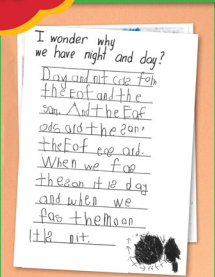 I wonder why
we have night and day?
Day and nit
the Eof and the
son. And the Eof
the Eof
When we fas
the son it is day
and when we
fas the moon
it is nit.